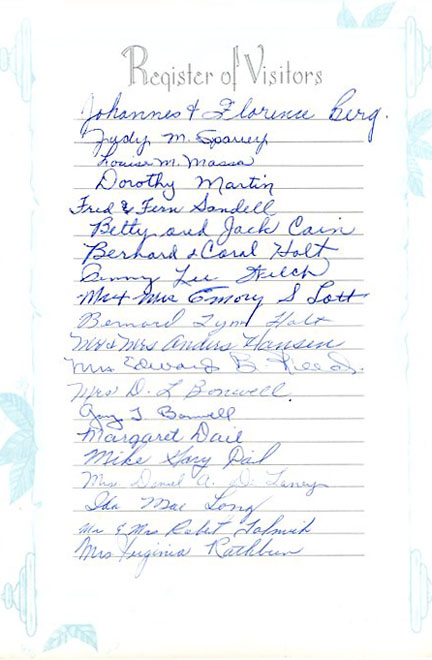 Register of Visitors
Johannes & Florence Berg.
Judy M. Sparey
Louise M. Massa
Dorothy Martin
Fred & Fern Sandell
Betty and Jack Cain
Berhard & Coral Holt
Lee
Mr & Mrs Emory S Lott
Bernard Lynn Holt
Mr & Mrs Anders Hansen
Mrs Edward B. Reed.
Mrs D. L Bonwell
Gary J Bonwell
Margaret Dail
Mike Gary Dail
Mrs Daniel A. D.
Ida Mae Long
Mr & Mrs Robert
Mrs Virginia Rathbun